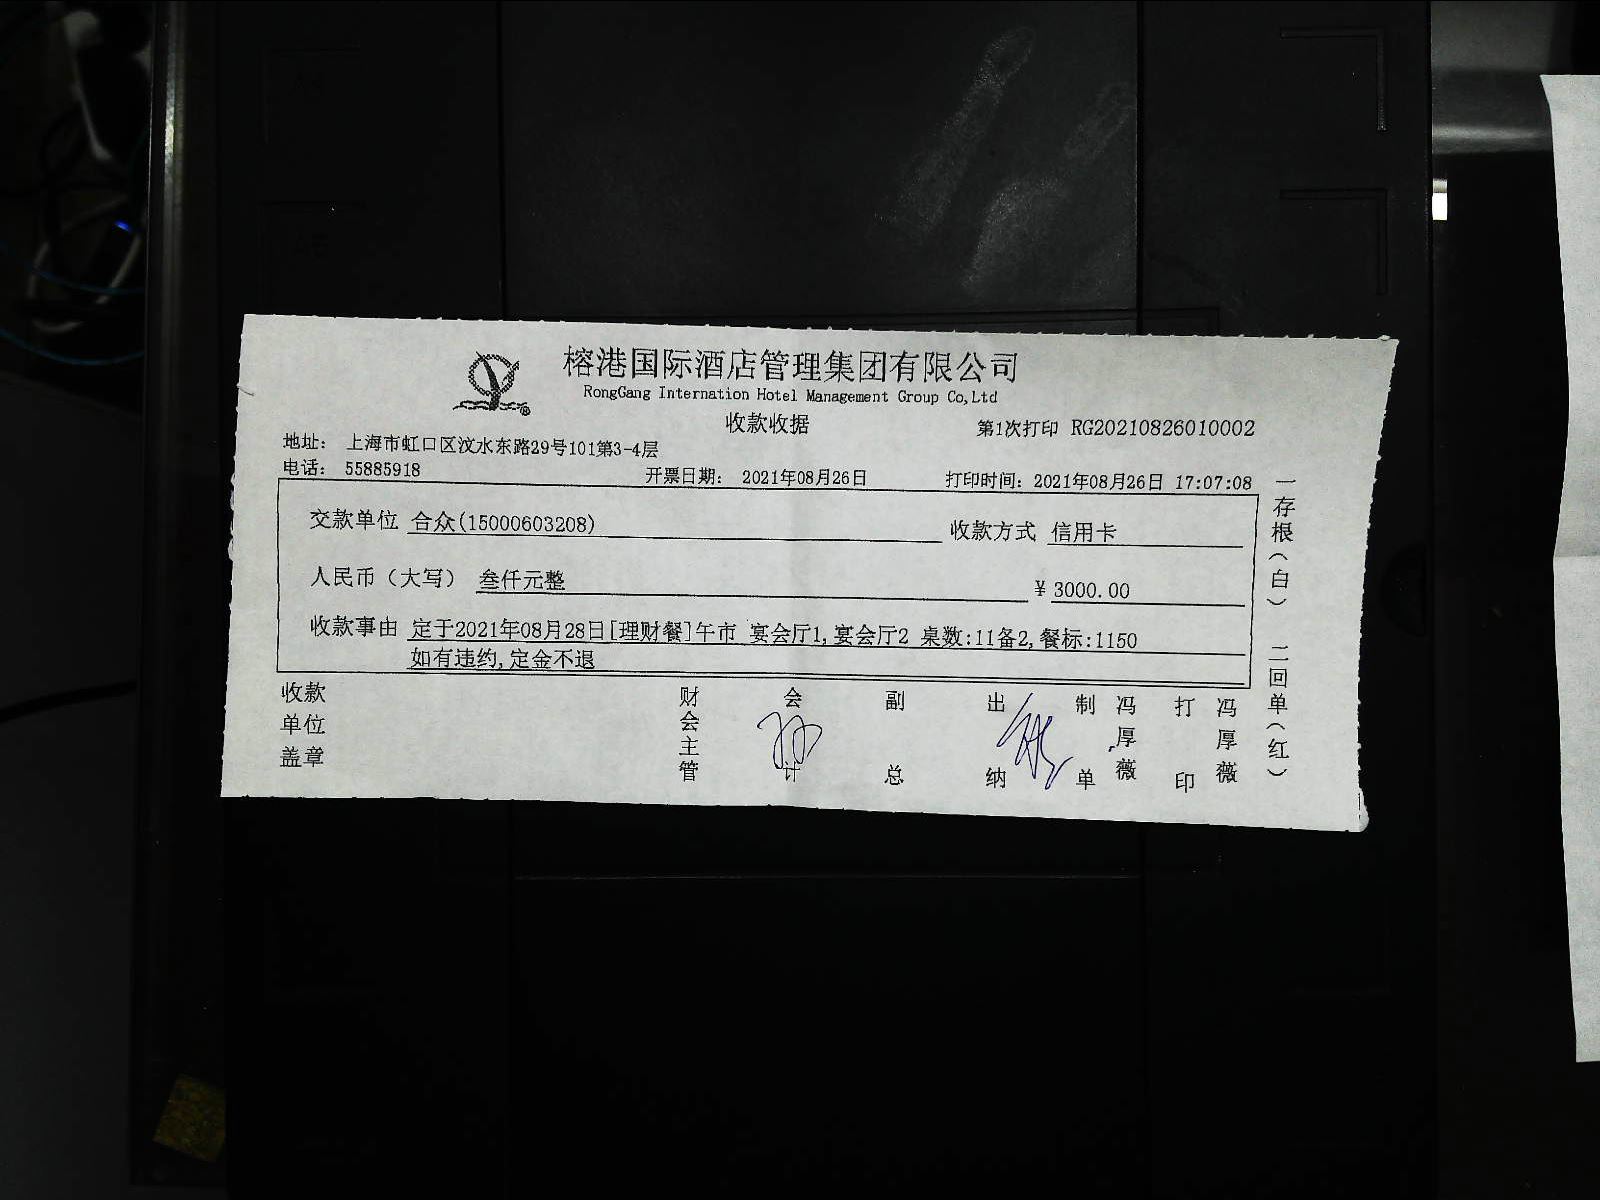 榕港国际酒店管理集团有限公司
RongGang Internation Hotel Management Group Co,Ltd
收款收据
第1次打印 RG20210826010002
地址： 上海市虹口区汶水东路29号101第3-4层
电话： 55885918
开票日期： 2021年08月26日
打印时间：2021年08月26日 17:07:08
交款单位 合众(15000603208)
收款方式 信用卡
人民币（大写） 叁仟元整
¥ 3000.00
收款事由 定于2021年08月28日[理财餐]午市 宴会厅1,宴会厅2 桌数:11备2,餐标:1150
如有违约,定金不退
收款单位盖章
财会主管
会计
副总
出纳
制单
冯厚薇
打印
冯厚薇
一存根（白） 二回单（红）